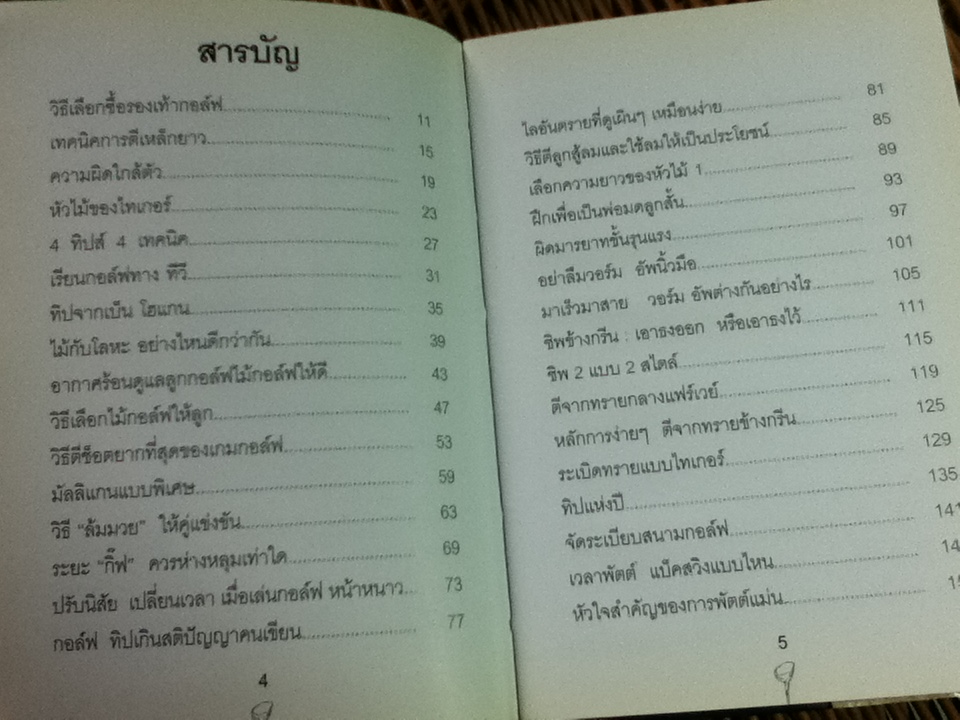 สารบัญ
วิธีเลือกซื้อรองเท้ากอล์ฟ 11
เทคนิคการตีเหล็กยาว 15
ความผิดใกล้ตัว 19
หัวไม้ของไทเกอร์ 23
4 ทิปส์ 4 เทคนิค 27
เรียนกอล์ฟทาง ทีวี 31
ทิปจากเบ็น โฮแกน 35
ไม้กับโลหะ อย่างไหนดีกว่ากัน 39
อากาศร้อนดูแลลูกกอล์ฟไม้กอล์ฟให้ดี 43
วิธีเลือกไม้กอล์ฟให้ลูก 47
วิธีตีช็อตยากที่สุดของเกมกอล์ฟ 53
มัลลิแกนแบบพิเศษ 59
วิธี “ล้มมวย” ให้คู่แข่งขัน 63
ระยะ “กิ๊ฟ” ควรห่างหลุมเท่าใด 69
ปรับนิสัย เปลี่ยนเวลา เมื่อเล่นกอล์ฟ หน้าหนาว 73
กอล์ฟ ทิปเกินสติปัญญาคนเขียน 77
4
ไลอันตรายที่ดูเผินๆ เหมือนง่าย 81
วิธีตีลูกสู้ลมและใช้ลมให้เป็นประโยชน์ 85
เลือกความยาวของหัวไม้ 1 89
ฝึกเพื่อเป็นพ่อมดลูกสั้น 93
ผิดมารยาทขั้นรุนแรง 97
อย่าลืมวอร์ม อัพนิ้วมือ 101
มาเร็วมาสาย วอร์ม อัพต่างกันอย่างไร 105
ชิพข้างกรีน : เอาธงออก หรือเอาธงไว้ 111
ชิพ 2 แบบ 2 สไตล์ 115
ตีจากทรายกลางแฟร์เวย์ 119
หลักการง่ายๆ ตีจากทรายข้างกรีน 125
ระเบิดทรายแบบไทเกอร์ 129
ทิปแห่งปี 135
จัดระเบียบสนามกอล์ฟ 141
เวลาพัตต์ แบ็คสวิงแบบไหน
หัวใจสำคัญของการพัตต์แม่น
5